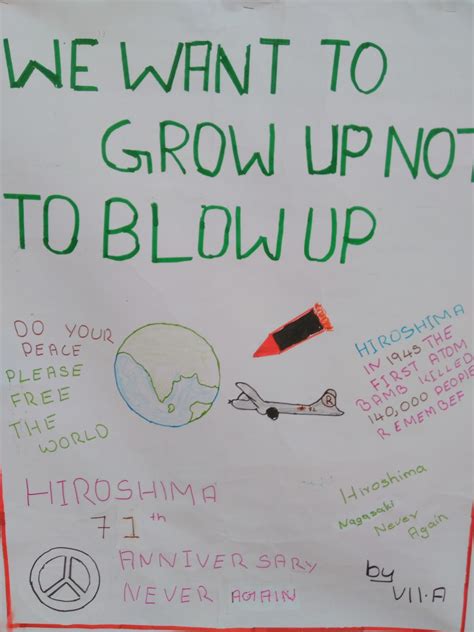 WE WANT TO
GROW UP NOT
TO BLOW UP
DO YOUR
PEACE
PLEASE
FREE
THE
WORLD
HIROSHIMA
IN 1945 THE
FIRST ATOM
BAMB KILLED
140,000 PEOPLE
REMEMBER
R
HIROSHIMA
71th
ANNIVERSARY
NEVER AGAIN
Hiroshima
Nagasaki
Never
Again
by
VII.A